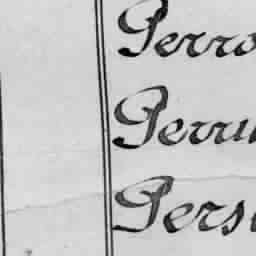 Perro
Perru
Perse